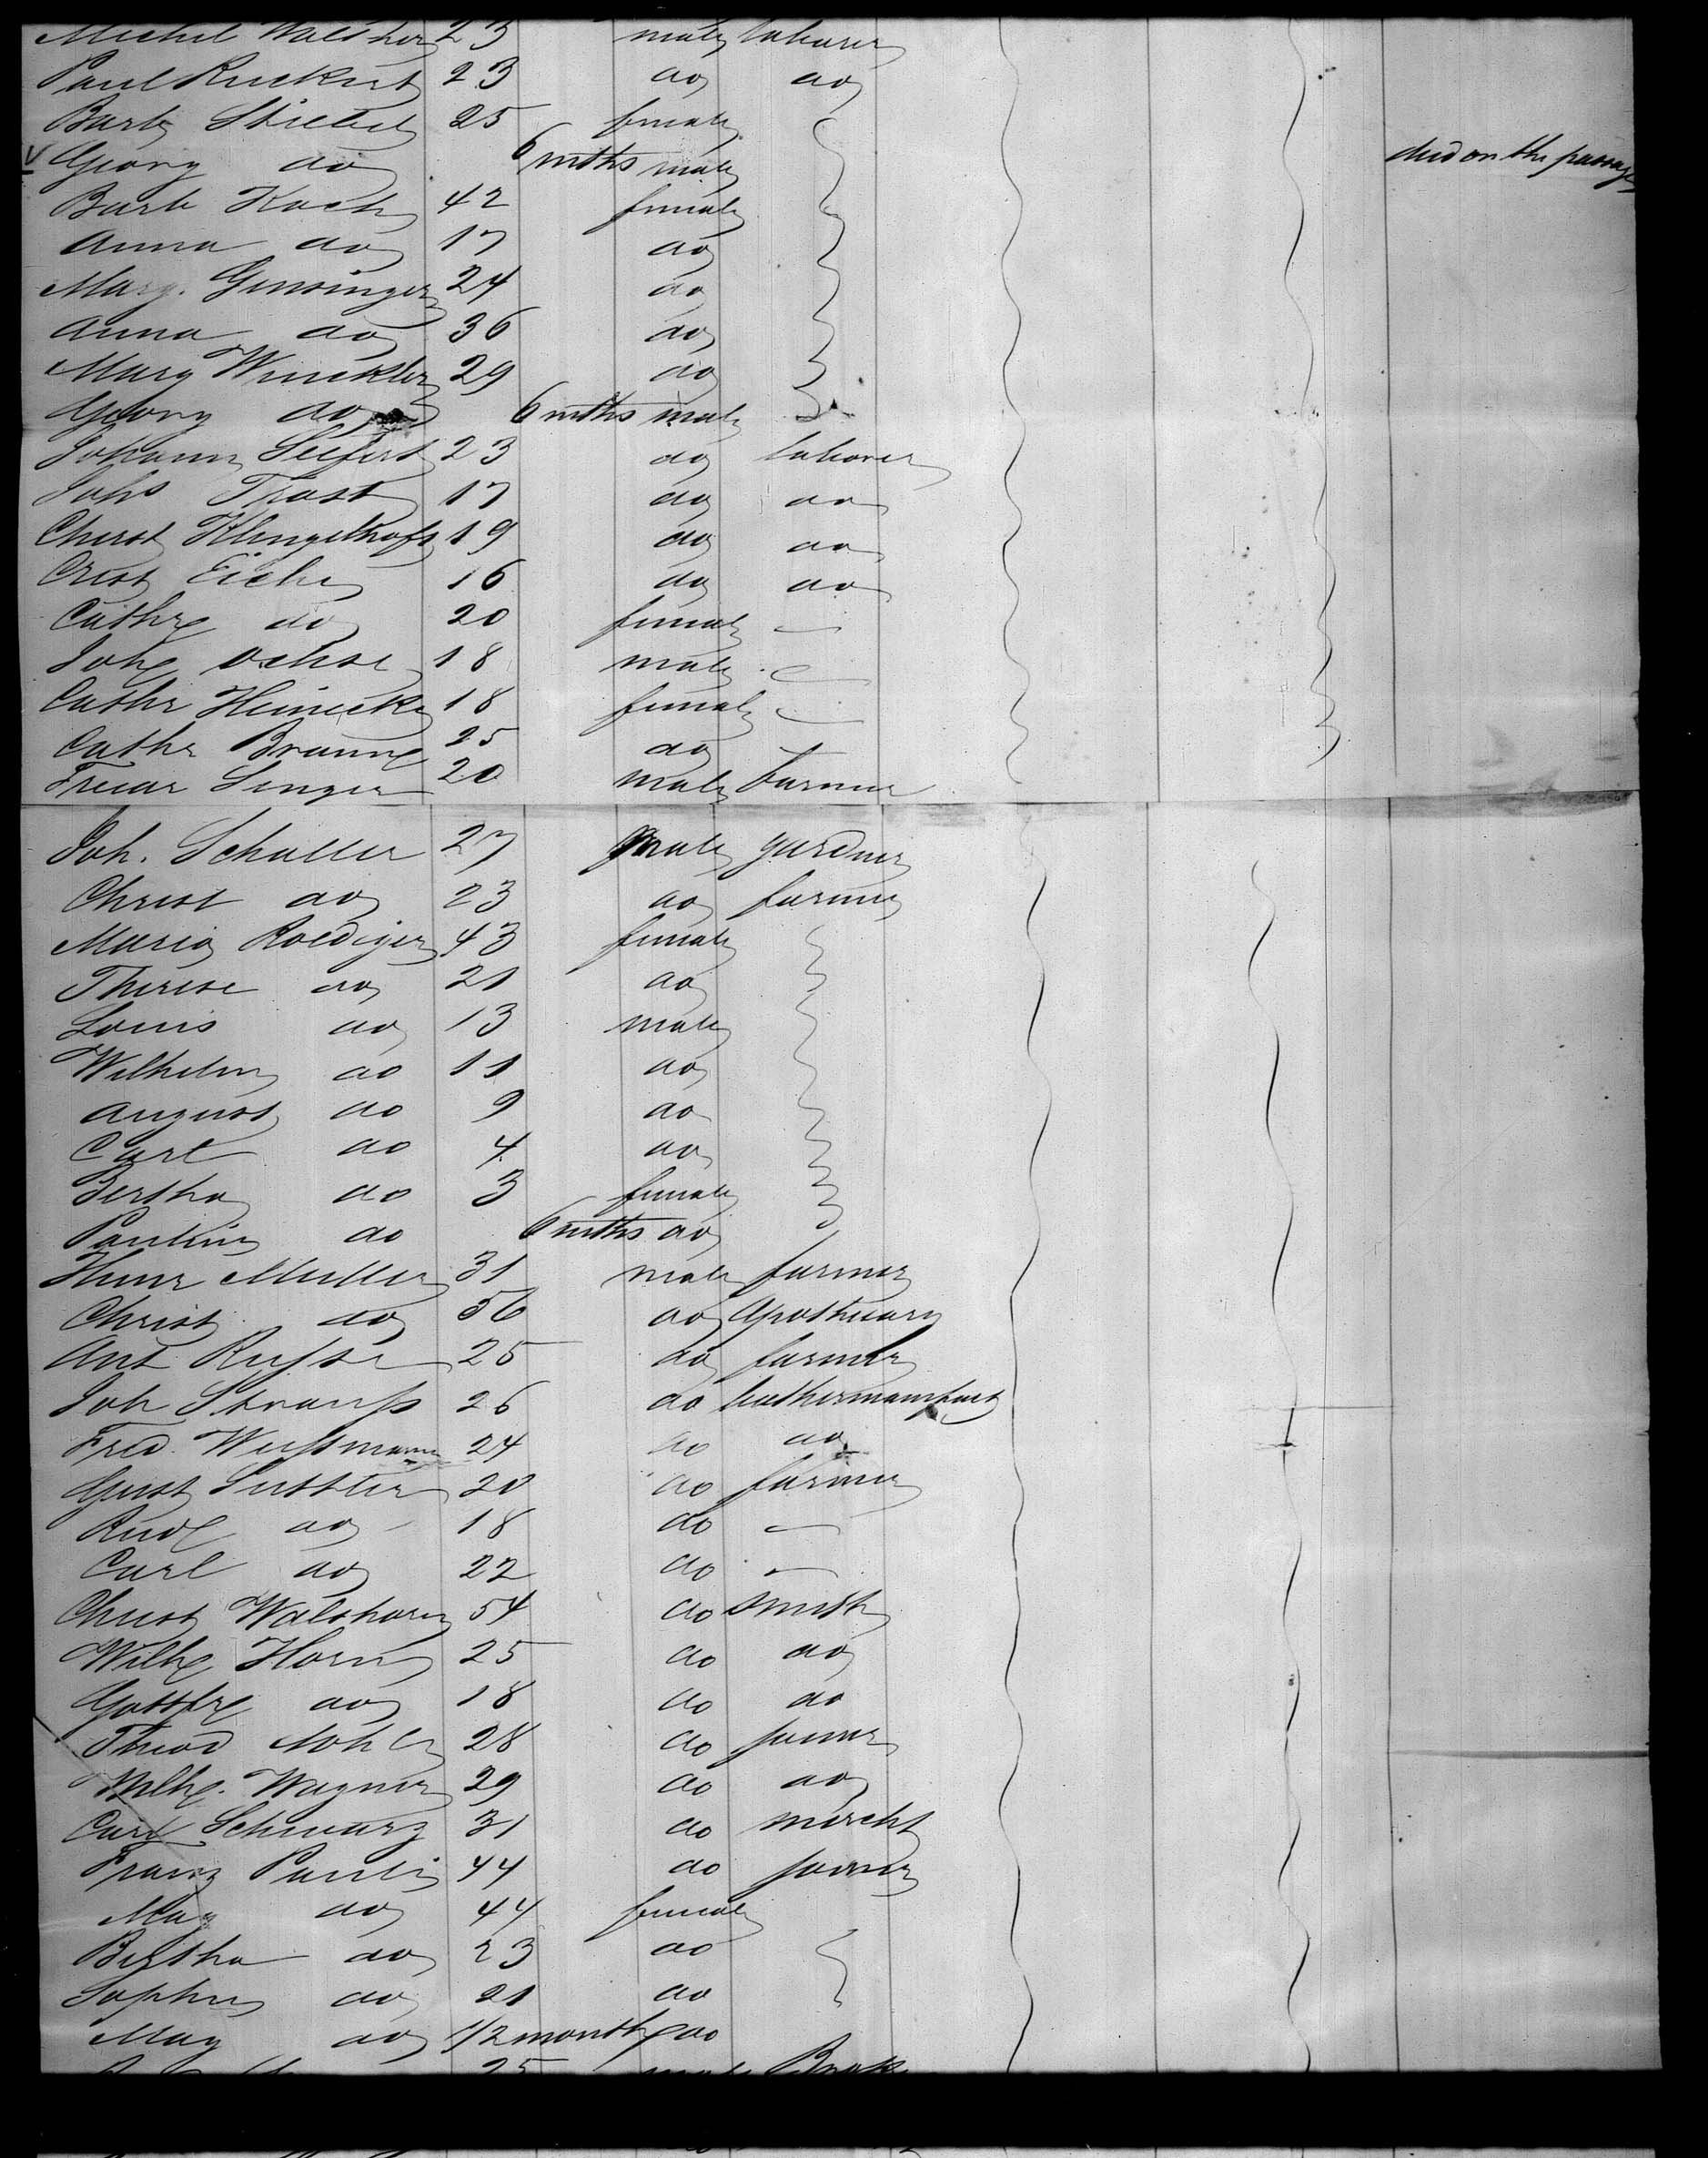 Michel Walther 23 male laborer
Paul Ruckert 23 do do
Barb Striebel 25 female
Georg do 6 mths male died on the passage
Barb Koch 42 female
Anna do 17 do
Marg. Gensinger 24 do
Anna do 36 do
Marg Winckler 29 do
Georg do 6 mths male
Johann Seifert 23 do laborer
Johs Trost 17 do do
Christ Klingelhofs 19 do do
Crist Eiche 16 do do
Cathre do 20 female —
Johe Ochse 18 male —
Cathr Heinecke 18 female —
Cathr Braune 25 do
Friedr Singer 20 male farmer
Joh. Schuller 27 male gardner
Christ do 23 do farmer
Maria Roediger 43 female
Therese do 21 do
Louis do 13 male
Wilhelm do 11 do
August do 9 do
Carl do 4 do
Bertha do 3 female
Pauline do 6 mths do
Heinr Muller 31 male farmer
Christ do 56 do Apothecary
Ant 25 do farmer
Joh Strauss 26 do leathermanufact
Fred. Weissmann 24 do do
Gust Sattler 20 do farmer
Rud do 18 do —
Carl do 22 do —
Christ Walthorn 54 do smith
Wilhe Horn 25 do do
Gottfre do 18 do do
Theod 28 do joiner
Wilhe. Wagner 29 do do
Carl Schwarz 31 do mercht
Franz Pauli 44 do joiner
May do 44 female
Bertha do 23 do
Sophie do 21 do
May do 1/2 month do
25 male